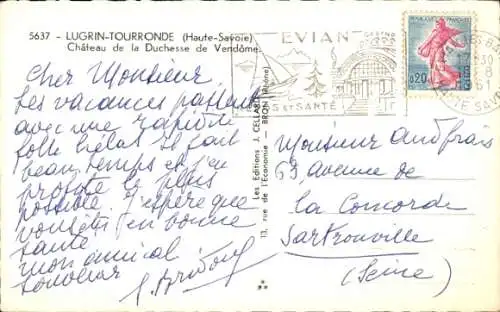 5637 - LUGRIN-TOURRONDE (Haute-Savoie)
Château de la Duchesse de Vendôme
Cher Monsieur
Les vacances passent
avec une rapidité
folle hélas Il fait
beau temps et j'en
profite le plus
possible. J'espère que
vous êtes en bonne
santé
mon amical
souvenir
Les Editions J. CELLARD
13, rue de l'Economie BRON (Rhône)
EVIAN
ET SANTÉ
0,20
Monsieur
63, avenue de
la Concorde
Sartrouville
(Seine)